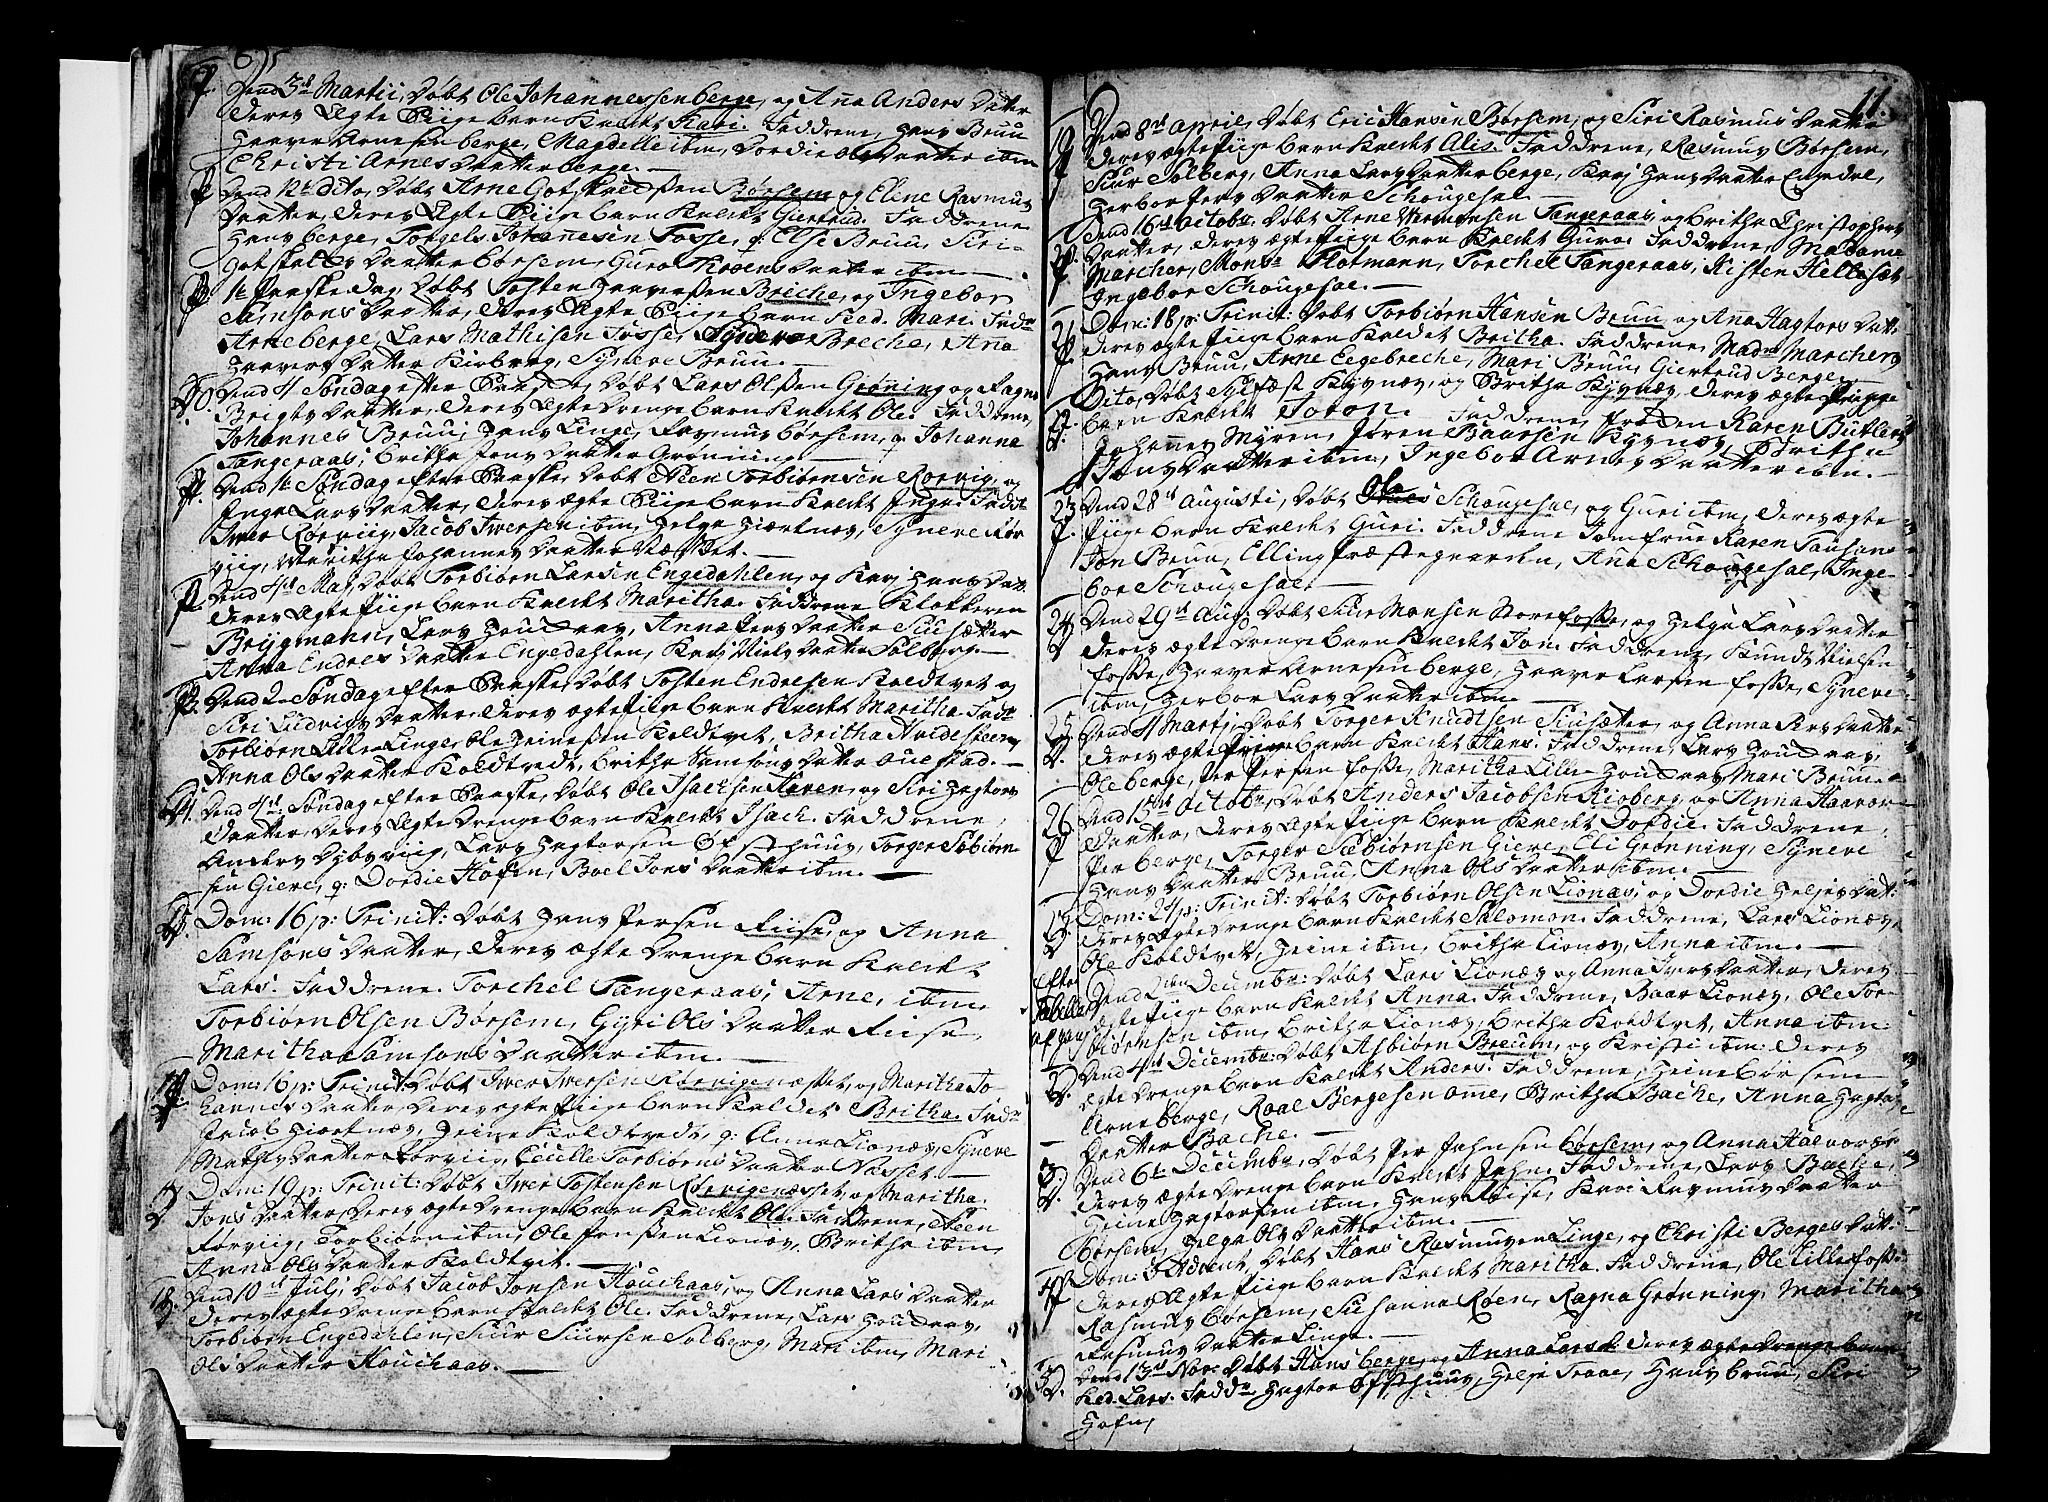 Dend 3die Martii, Døbt Ole Johannessen berge, og Anna Anders Daatter
deres Ægte Piige barn Kaldet Kari. Faddrene, Hans Bruu
Haaver Arnesen berge, Magdelle ibm, Dordie Ols Daatter ibm
Christi Arnes Daatter berge.
Dend 12te dito, Døbt Arne Gotskaldsen Børsem og Eline Rasmus
Daatter, deres Ægte Piige barn Kaldet Giertrud. Faddrene
Hans berge, Torgels Johannesen Fosse, q: Else Bruu, Siri
Gotskalds Daatter Børsem, Guro Daatter ibm
1te Paaske dag, Døbt Tosten Haaversen Breche, og Ingebor
Samsons Daatter, deres Ægte Piige barn Kal. Mari. Fadr
Arne berge, Lars Mathisen Fosse, Breche, Anna
Haavers Daatter Kioberg, Synneve Bruu.
Dend 4 Søndag efter Paaske, Døbt Lars Olsen Grøning og Ragna
Brigts Daatter, deres Ægte Drenge barn Kaldet Ole. Faddrene,
Johannes Bruu, Hans Linge, Rasmus Børsem, q: Johanna
Tangeraas, Brithe Jens Daatter Grønning
Dend 1te Søndag efter Paaske, Døbt Steen Torbiørnsen Rørviig, og
Inga Lars Daatter, deres ægte Piige barn Kaldet Inger. Fadd
Iwer Rørviig, Jacob Iwersen ibm, Helga Hiertnæs, Synneve Rør
viig, Maritha Johannes Daatter Næsset.
Dend 4de Maj, Døbt Torbiørn Larsen Engedahlen, og Kari Hans Datt.
deres Ægte Piige barn Kaldet Maritha. Faddrene Klokkeren
Brygmann, Lars Houdaas, Anna Lars Daatter Siusætter
Anna Endres Daatter Engedahlen, Kari Niels Daatter Solberg
Dend 2 Søndag efter Paaske, Døbt Tosten Endresen Koldtvet og
Siri Ludvigs Daatter, deres ægte Piige barn Kaldet Maritha. Fadr
Torbiørn Lille Linge, Ole Heinesen Koldtvet, Britha Hvidesteen,
Anna Ols Daatter Koldtvedt, Britha Samsons Daatter Ouestad.
Dend 4de Søndag efter Paaske, Døbt Ole Isachsen Haven, og Siri Hagtors
Daatter, deres Ægte Drenge barn Kaldet Isach. Faddrene,
Anders Dybviig, Lars Hagtorsen Ofsthuus, Torger Sæbiørn
sen Gieve, q: Dordie Hofen, Boel Jons Daatter ibm.
Dom: 16 p: Trinit: Døbt Hans Persen Riise, og Anna
Samsons Daatter, deres ægte Drenge barn Kaldet
Lars. Faddrene. Torchel Tangeraas, Arne, ibm
Torbiørn Olsen Børsem, Gyri Ols Daatter Riise,
Maritha Samsons Daatter ibm.
Dom: 16 p: Trinit: Døbt Iwer Iwersen Rørvigenæsset, og Maritha Jo
hannes Daatter, deres ægte Piige barn Kaldet Britha. Fadr
Jacob Hiortnæs, Heine Koldtvedt, q: Anna Lionæs, Synneve
Mathis Daatter Rørviig, Cicille Torbiørns Daatter Næsset.
Dom: 19 p: Trinit: Døbt Iwer Tostensen Rørvigenæsset, og Maritha
Jons Daatter, deres ægte Drenge barn Kaldet Ole. Faddrene, Steen
Rørviig, Torbiørn ibm, Ole Jensen Lionæs, Britha ibm,
Anna Ols Daatter Koldtvet.
18. Dend 10de Julj, Døbt Jacob Jonsen Houchaas, og Anna Lars Daatter
deres ægte Drenge barn Kaldet Ole. Faddrene, Lars Houdaas,
Torbiørn Engedahlen, Siur Siursen Solberg, Mari ibm, Mari
Ols Daatter Houchaas.
11.
Dend 8de April, Døbt Eric Hansen Børsem, og Siri Rasmus Daatter
deres ægte Piige barn Kaldet Alis. Faddrene, Rasmus Børsem,
Siur Solberg, Anna Lars Daatter berge, Kari Hans Daatter Engdal,
Herbor Jens Daatter Schougesal
Dend 16de Octobr, Døbt Arne Tangeraas, og Britha Christophers
Daatter, deres ægte Piige barn Kaldet Guro. Faddrene, Madame
Marcher, Monsr Flotmann, Torchel Tangeraas, Kisten Hellisæt
Ingebor Schougesal.
21 Dom: 18 p: Trinit: Døbt Torbiørn Hansen Bruu, og Anna Hagtors Datt
deres ægte Piige barn Kaldet Britha. Faddrene, Madme Marchers
Hans Bruu, Arne Eegebreche, Mari Bruu, Giertrud Berge
Dito, Døbt Sylfæst Kysnæs, og Britha Kysnæs, deres ægte
barn Kaldet Toron. Faddrene, Frøden Karen Butlers
Johannes Myren, Jøren Baarsen Kysnæs, Britha
Jens Daatter ibm, Ingebor Arnes Daatter ibm.
23 Dend 28de Augusti, Døbt Ole Schougesal, og Guri ibm, deres ægte
Piige barn Kaldet Guri. Faddrene Jomfrue Karen Tausan
Jon Bruu, Elling Præstegaarden, Ana Schougesal, Inge
bor Schougesal.
24 Dend 29de Aug: Døbt Siur Monsen Storefosse, og Helga Lars Daatter
deres ægte Drenge barn Kaldet Jon. Faddrene, Knudt Nielsen
Fosse, Haaver Arnesen berge, Haaver Larsen Fosse, Synneve
ibm, Herbor Lars Daatter ibm.
25. Dend 4 Martj, Døbt Torger Knudtsen Siusætter, og Anna Pers Daatter
deres ægte barn Kaldet Hans. Faddrene, Lars Houdaas,
Ole berge, Per Persen Fosse, Maritha Lille Houdaas Mari Bruu
26 Dend 15de Octobr, Døbt Anders Jacobsen Kioberg, og Anna Haavor
Daatter, deres Ægte Piige barn Kaldet Dordie. Faddrene,
Per berge, Torger Sæbiørnsen Gieve, Eli Grønning, Synneve
Hans Daatter Bruu, Anna Ols Daatter ibm.
Dom: 24 p: Trinit: Døbt Torbiørn Olsen Lionæs, og Dordie Heljes Dat:
deres Ægte Drenge barn Kaldet Salomon. Faddrene, Lars Lionæs,
Ole Koldtvet, Heine ibm, Britha Lionæs, Anna ibm.
Efter
Tabellens
afgang
Dend 2den Decembr: Døbt Lars Lionæs og Anna Iwers Daatter, deres
ægte Piige barn Kaldet Anna. Faddrene, Baar Lionæs, Ole Tor-
biørnsen ibm, Britha Lionæs, Britha Koldtvet, Anna ibm.
Dend 4de Decembr: Døbt Asbiørn Breum, og Kristi ibm: deres
ægte Drenge barn Kaldet Anders. Faddrene, Heine Børsem
Arne berge, Roal Bergesen Ome, Britha Bache, Anna Hagtors
Daatter Bache.
3. Dend 6te Decembr, Døbt Per Jahnsen Børsem, og Anna Halvors
deres ægte Drenge barn Kaldet Jahn. Faddrene, Lars Bache,
Heine Hagtorsen ibm, Hans Riise, Kari Rasmus Daatter
Børsem, Helga Ols Daatter ibm.
Dom: 3 Advent, Døbt Hans Rasmusen Linge, og Christi Berges Datt.
deres Ægte Piige barn Kaldet Maritha. Faddrene, Ole Lille Fosse
Rasmus Børsem, Susanna Røen, Ragna Grønning, Maritha
Rasmus Daatter Linge.
Dend 13de Novr Døbt Hans berge, og Anna Larsd: deres ægte Drenge barn
Kal. Lars. Faddr Hagtor Ofsthuus, Helje Traae, Hans Bruu, Siri
Hofn,